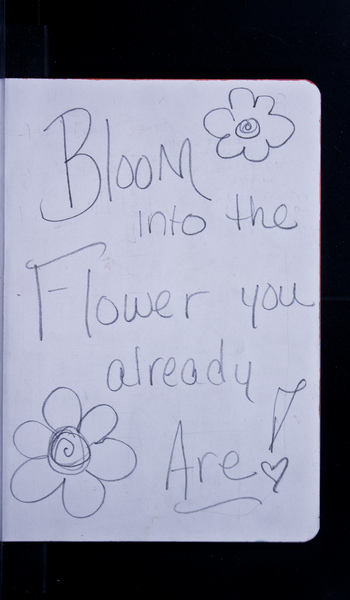 Bloom
into the
Flower you
already
Are!